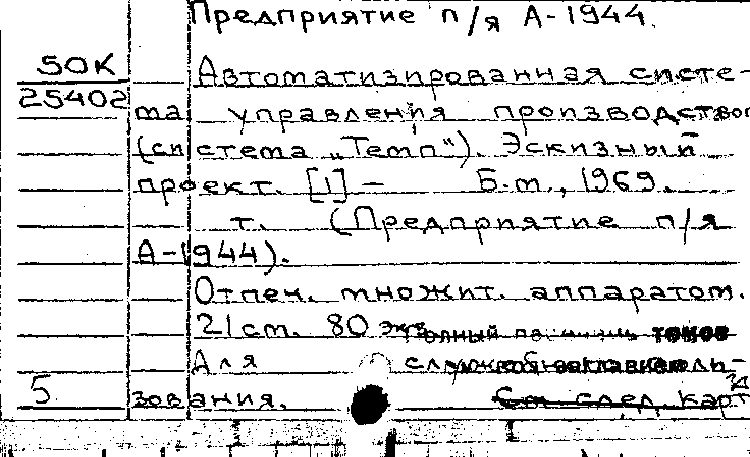 Предприятие п/я А-1944.
50К
Автоматизированная систе-
25402
ма управления производством
(система „Темп“). Эскизный
проект. [1] – Б.м., 1969.
т. (Предприятие п/я
А-1944).
Отпеч. множит. аппаратом.
21 см. 80 экз. полный томов
Для
5
зования. См. след. карт